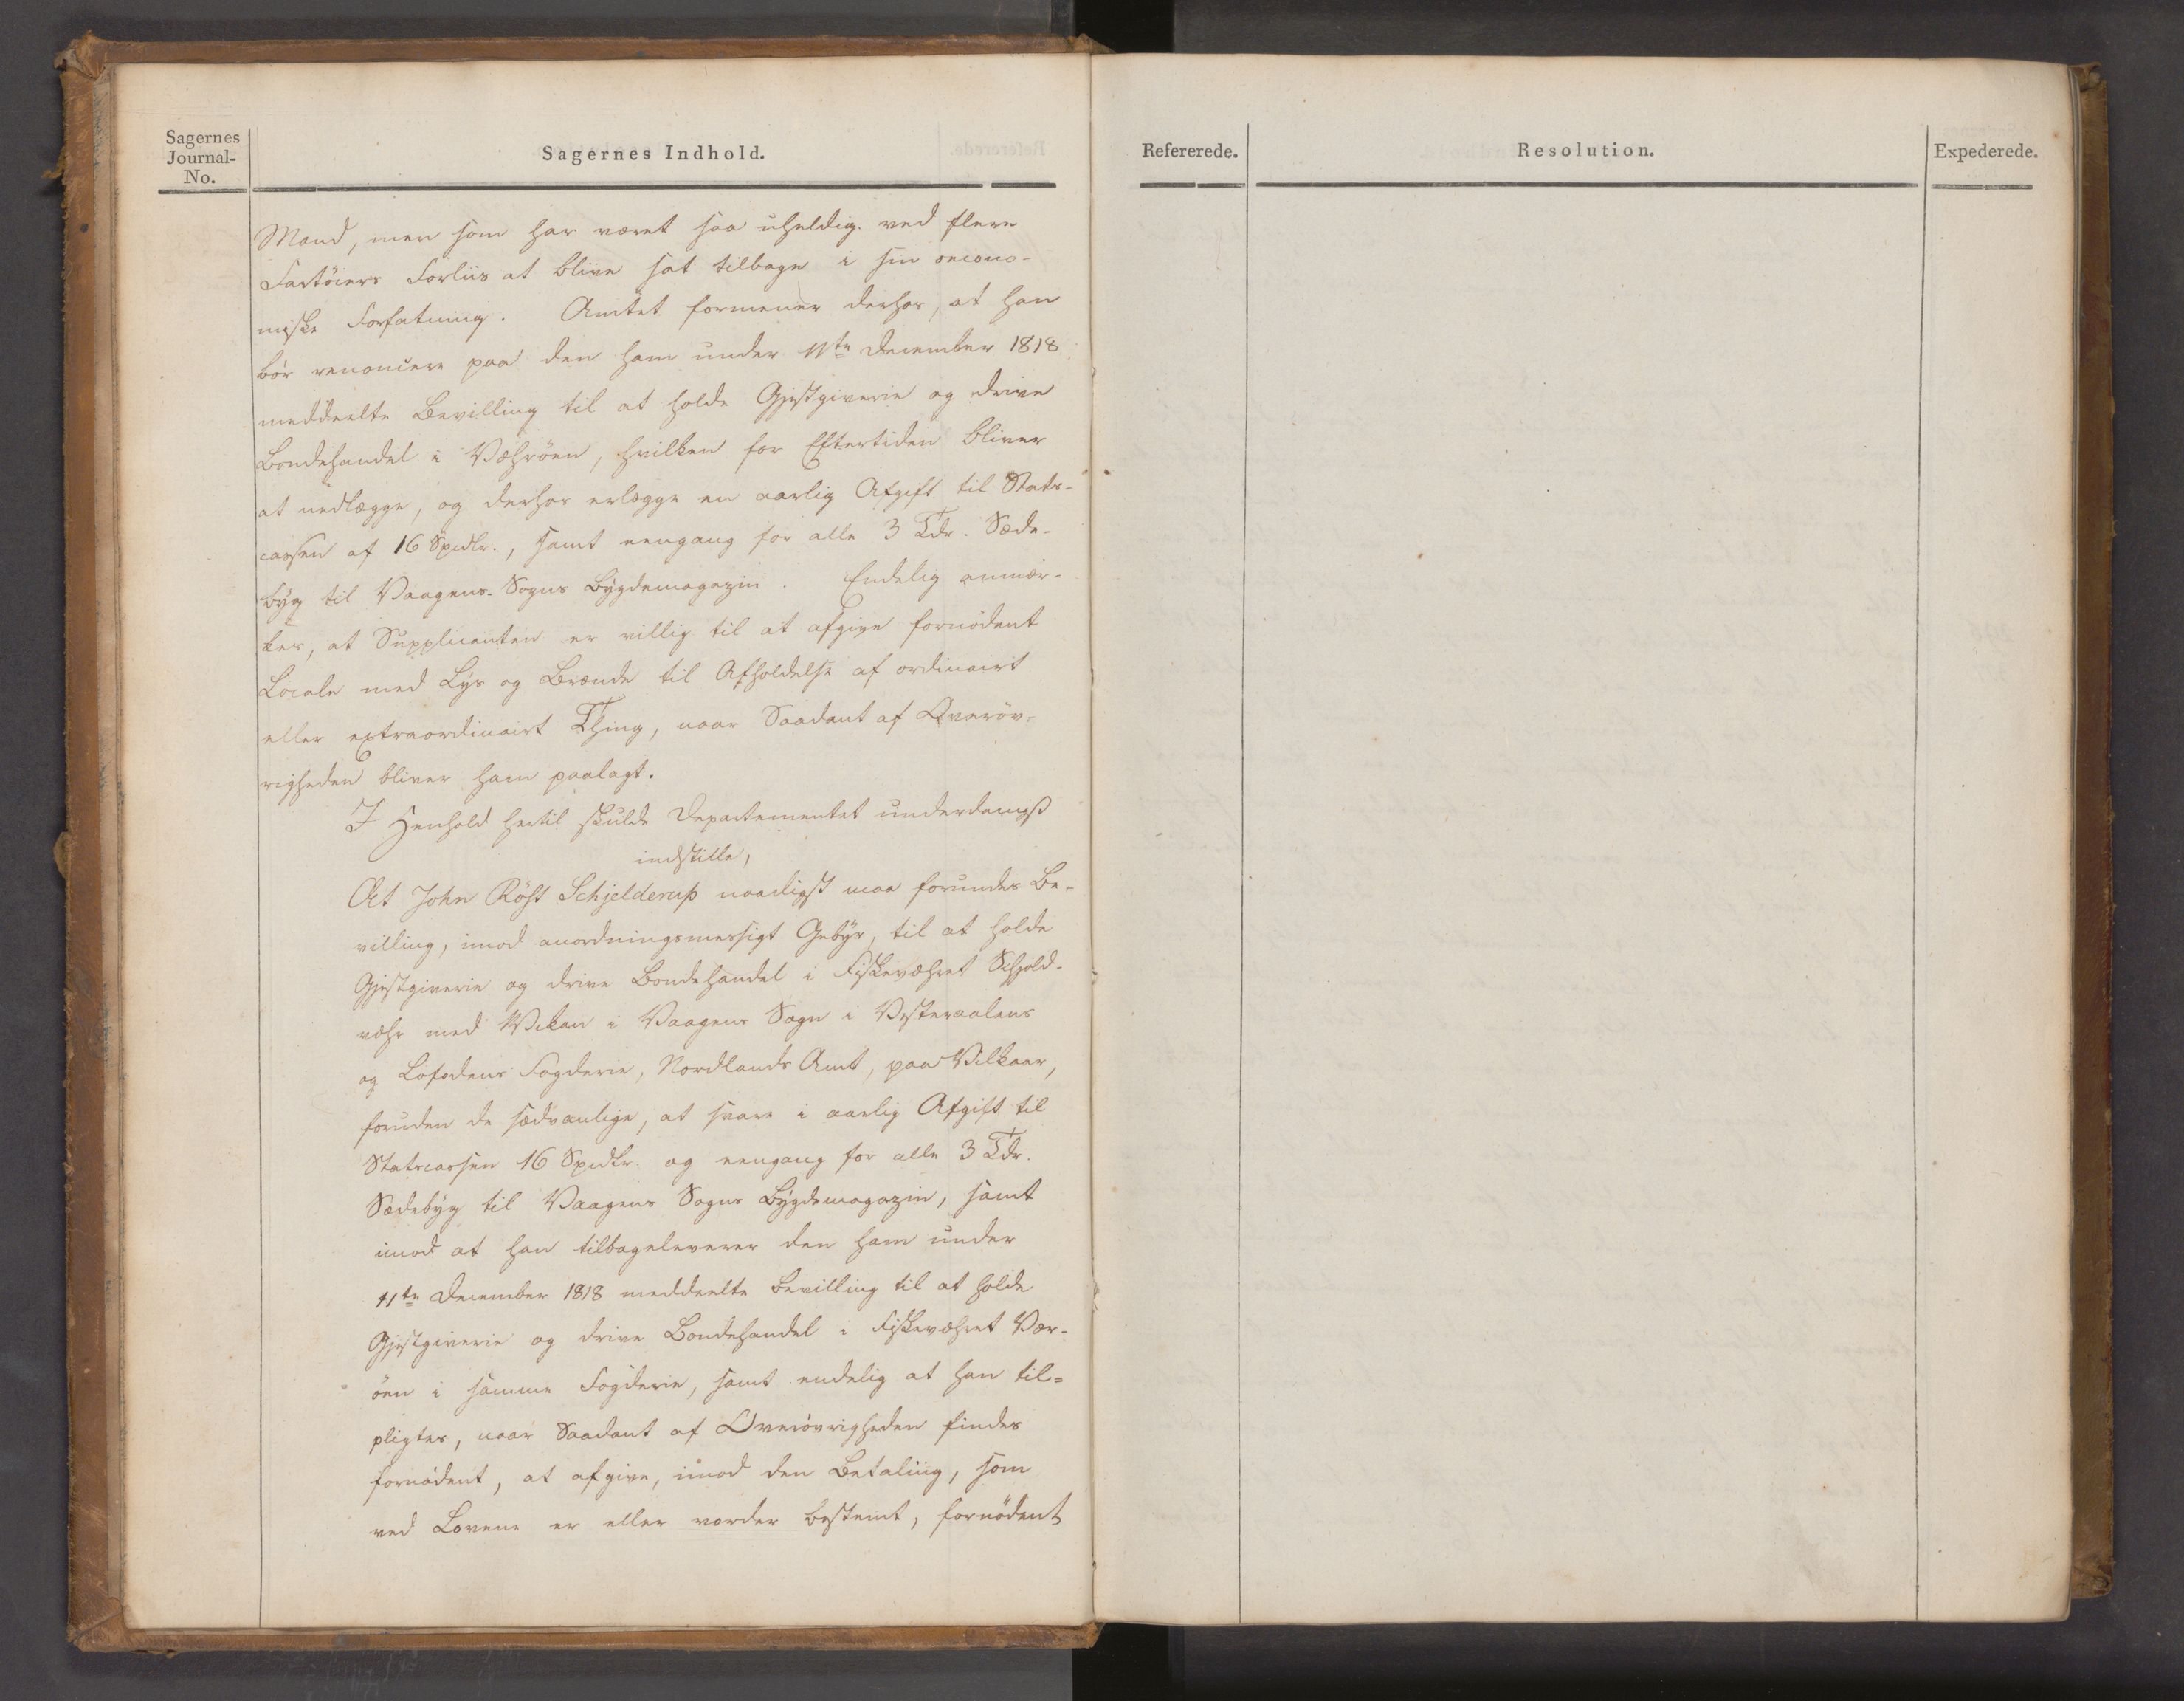 Sagernes
Journal-
No.
Sagernes Indhold.
Refererede.
Resolution.
Expederede.
Mand, men som har været saa uheldig ved flere
Fartöiers Forliis at blive sat tilbage i sin oecono-
miske Forfatning. Amtet formener derhos, at han
bör renoncere paa den ham under 11te December 1818
meddeelte Bevilling til at holde Gjestgiverie og drive
Bondehandel i Væhröen, hvilken for Eftertiden bliver
at nedlægge, og derhos erlægge en aarlig Afgift til Stats-
cassen af 16 Spdlr., samt eengang for alle 3 Tdr. Sæde-
byg til Vaagens Sogns Bygdemagazin. Endelig anmær-
kes, at Supplicanten er villig til at afgive fornödent
Locale med Lys og Brænde til Afholdelse af ordinairt
eller extraordinairt Thing, naar Saadant af Overöv-
righeden bliver ham paalagt.
I Henhold hertil skulde Departementet underdanigst
indstille,
At John Röst Schjelderup naadigst maa forundes Be-
villing, imod anordningsmessigt Gebyr, til at holde
Gjestgiverie og drive Bondehandel i Fiskeværhet Schjold-
væhr med Vikan i Vaagens Sogn i Vesteraalens
og Lofodens Fogderie, Nordlands Amt, paa Vilkaar,
foruden de sædvanlige, at svare i aarlig Afgift til
Statscassen 16 Spdlr. og eengang for alle 3 Tdr.
Sædebyg til Vaagens Sogns Bygdemagazin, samt
imod at han tilbageleverer den ham under
11te December 1818 meddeelte Bevilling til at holde
Gjestgiverie og drive Bondehandel i Fiskevæhret Vær-
öen i samme Fogderie, samt endelig at han til-
pligtes, naar Saadant af Overövrigheden findes
fornödent, at afgive, imod den Betaling, som
ved Lovene er eller vorder bestemt, fornödent